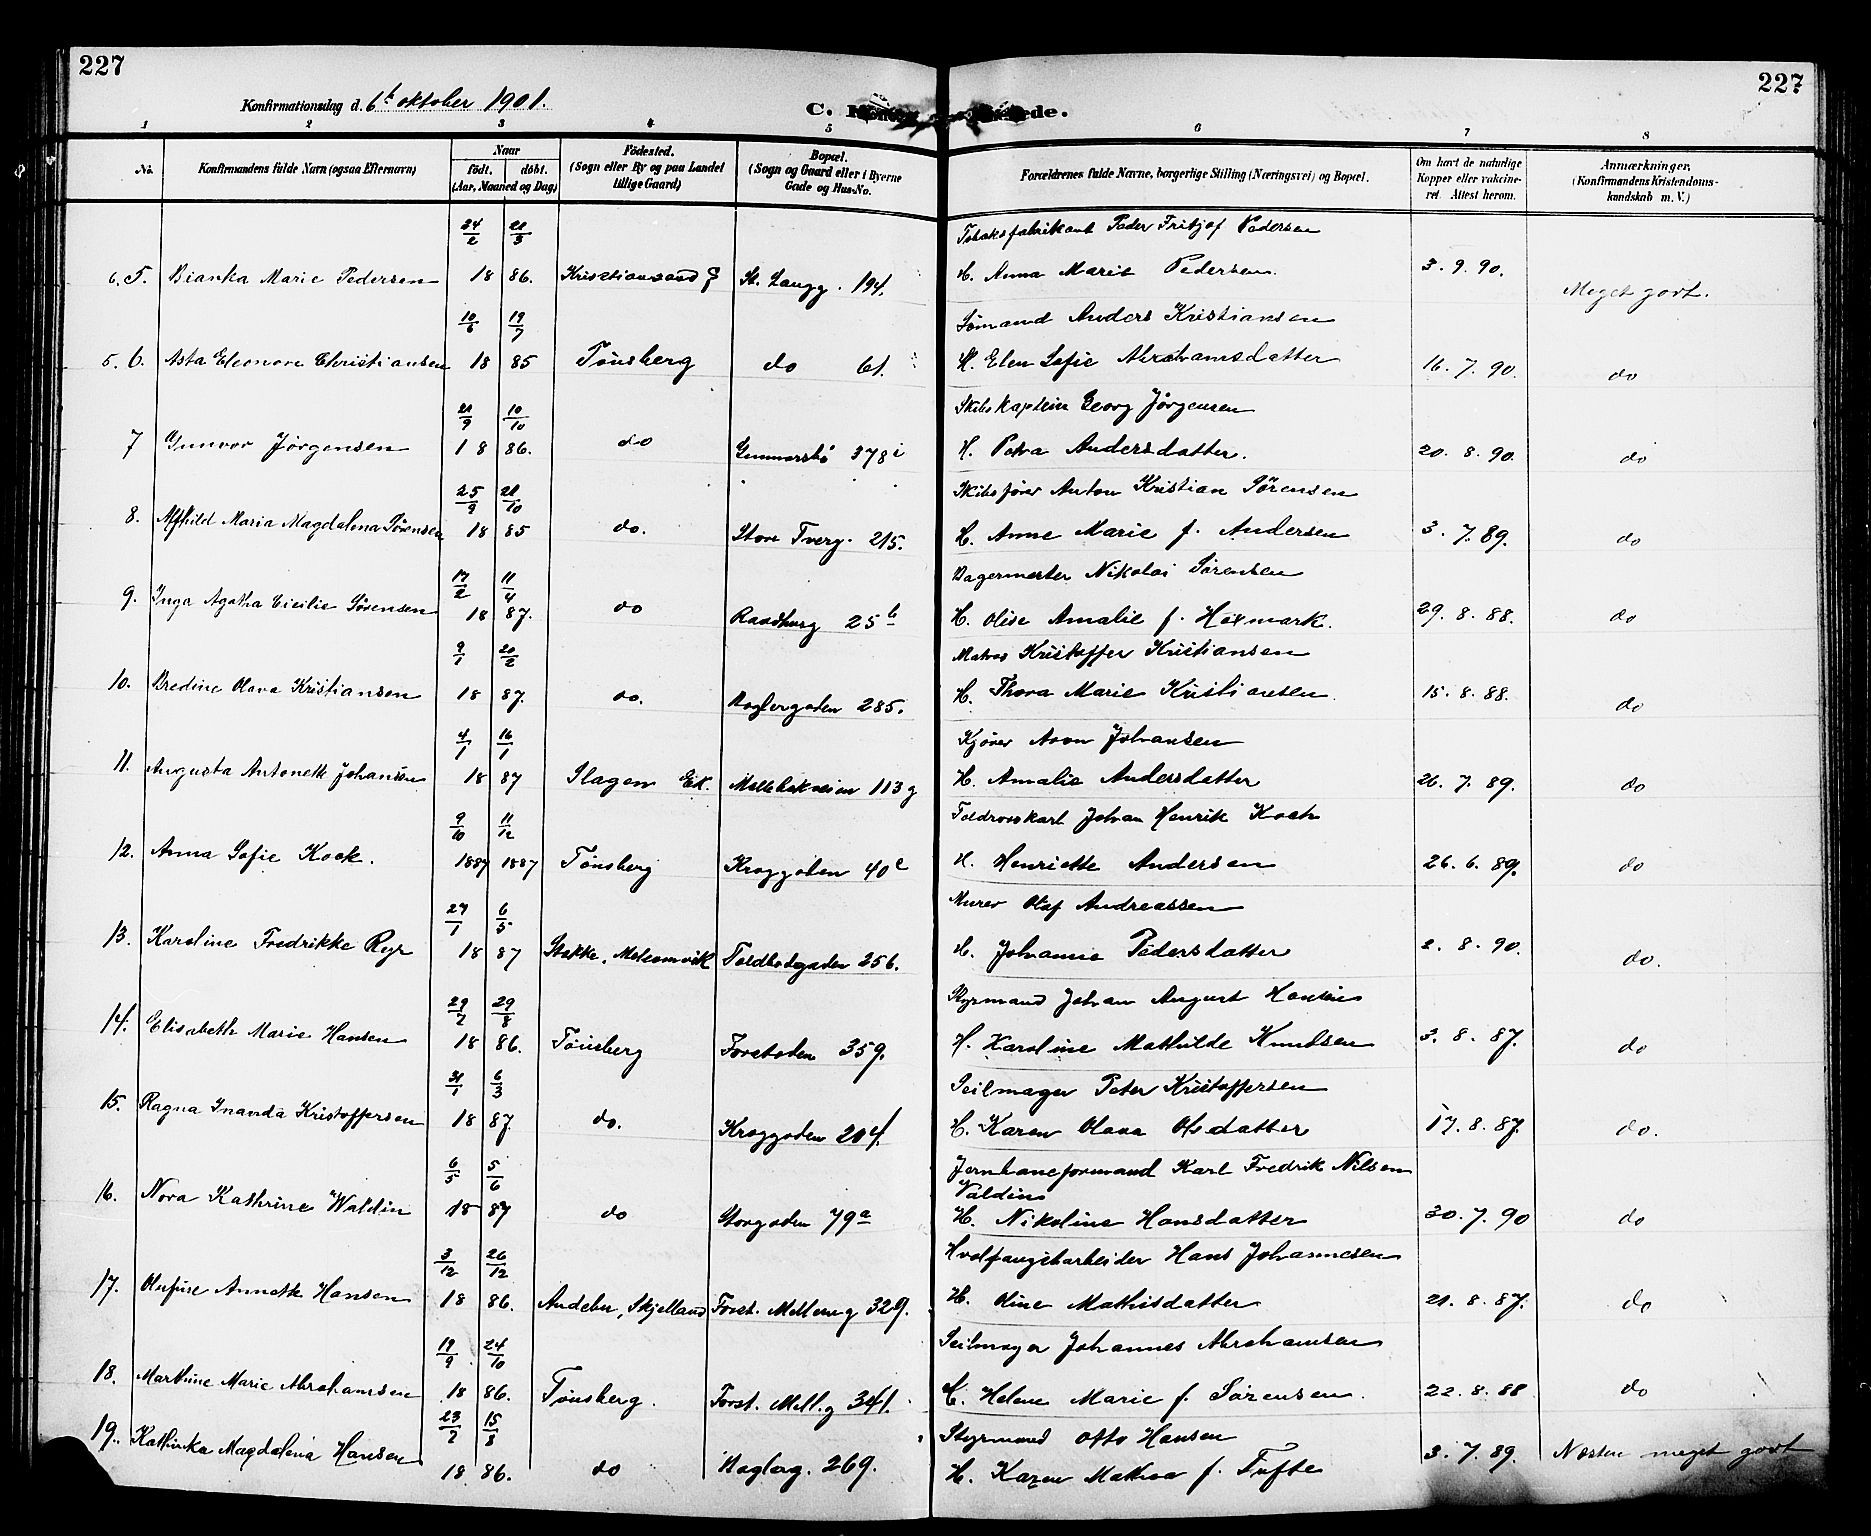 227
227
Konfirmationsdag d. 6t oktober 1901.
C. de.
1 2 3 4 5 6 7 8
No.
Konfirmandens fulde Navn (ogsaa Efternavn)
Naar
födt. döbt.
(Aar, Maaned og Dag)
Födested.
(Sogn eller By og paa Landet
tillige Gaard)
Bopæl.
(Sogn og Gaard eller i Byerne
Gade og Hus-No.
Forældrenes fulde Navne, borgerlige Stilling (Næringsvei) og Bopæl.
Om havt de naturlige
Kopper eller vakcine-
ret. Attest herom.
Anmærkninger,
(Konfirmandens Kristendoms-
kundskab m. V.)
24/2 21/3 Tobaksfabrikant Peder Fritjof Pedersen
6. 5. Bianka Marie Pedersen 18 86. Kristianssand St. Langg. 194. H. Anna Marie Pedersen. 3. 9. 90. Meget godt.
10/6 19/7 Sömand Anders Kristiansen
5. 6. Asta Eleonore Christiansen 18 85 Tönsberg do 61. H. Elen Sofie Abrahamsdatter 16. 7. 90. do
21/9 10/10 Skibskaptein Georg Jörgensen
7 Gunvor Jörgensen 18 86. do Gunnarsbö 378 i H. Petra Andersdatter. 20. 8. 90. do
25/9 21/10 Skibsförer Anton Kristian Sörensen
8. Alfhild Maria Magdalena Sörensen 18 85 do. Store Tverg. 215. H. Anne Marie f. Andersen 3. 7. 89. do
17/2 11/4 Bagermester Nikolai Sörensen
9. Inga Agatha Cicilie Sörensen 18 87. do Raadhusg 25 b H. Olise Amalie f. Hoxmark. 29. 8. 88. do
9/1 20/2 Matros Kristoffer Kristiansen
10. Bredine Olava Kristiansen 18 87. do. Baglergaden 285. H. Thora Marie Kristiansen. 15. 8. 88. do
4/1 16/1 Kjörer Aron Johansen
11. Augusta Antonette Johansen 18 87 Slagen Ek. Möllebakveien 113 g H. Amalie Andersdatter 26. 7. 89. do
9/10 11/12 Toldroerskarl Johan Henrik Koch
12. Anna Sofie Kock. 1887 1887 Tönsberg Kroggaden 40 c H. Henriette Andersen 26. 6. 89. do
27/1 6/5 Murer Olaf Andreassen
13. Karoline Fredrikke Ryr 18 87 Stokke, Melsomvik Toldbodgaden 256. H. Johanne Pedersdatter 2. 8. 90. do.
29/7 29/8 Styrmand Johan August Hansen
14. Elisabeth Marie Hansen 18 86. Tönsberg Forstaden 359. H. Karoline Mathilde Knudsen 3. 8. 87. do
31/1 6/3 Seilmager Peter Kristoffersen
15. Ragna Inanda Kristoffersen 18 87. do. Kroggaden 204. H. Karen Olava Olsdatter 17. 8. 87. do.
6/5 5/6 Jernbaneformand Karl Fredrik Nilsen
Valdins
16. Nora Kathrine Waldin 18 87 do Storgaden 79 a H. Nikoline Hansdatter 30. 7. 90 do
3/12 26/12 Hvalfangstarbeider Hans Johannesen
17. Olufine Annette Hansen 18 86. Andebu, Skjelland Forst. Mellemg 329. H. Oline Mathisdatter 21. 8. 87. do
19/9 24/10 Seilmager Johannes Abrahamsen
18. Marthine Marie Abrahamsen 18 86. Tönsberg. Forst. Mell.g 341. H. Helene Marie f. Sörensen. 22. 8. 88 do
23/7 15/8 Styrmand Otto Hansen
19. Kathinka Magdalena Hansen 18 86. do Baglerg. 269. H. Karen Mathea f. Tufte 3. 7. 89. Næsten meget godt